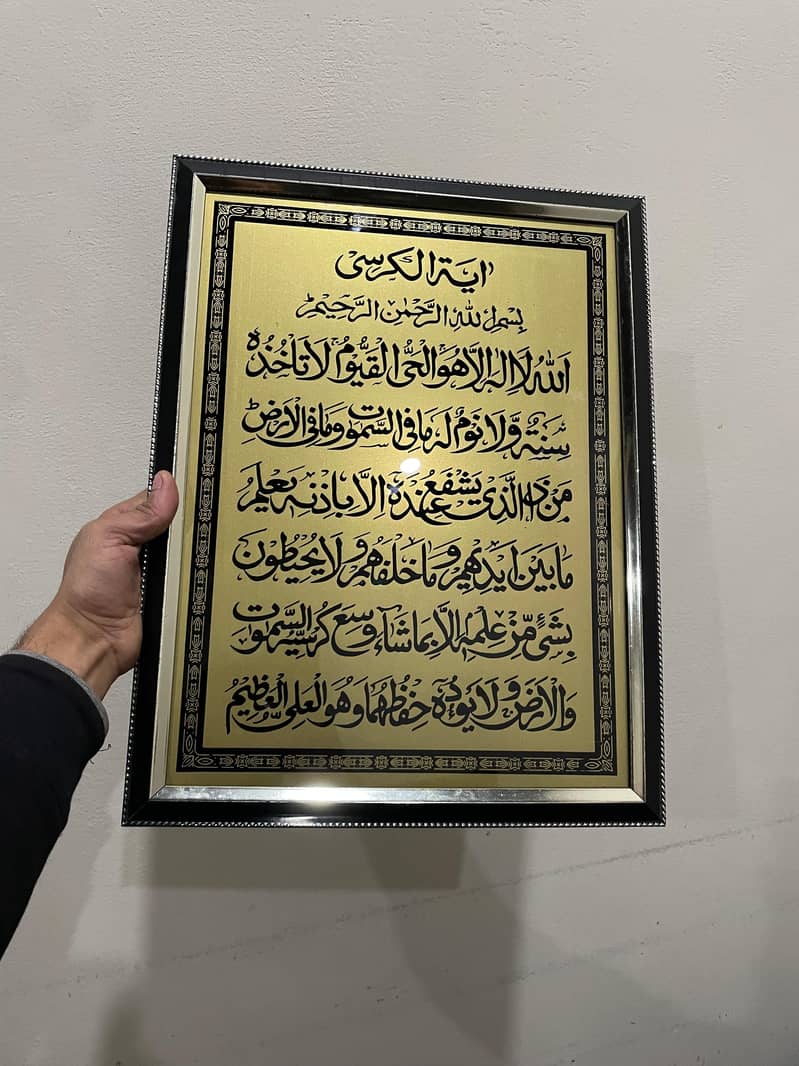 اٰیَةُ الْکُرْسِی
بِسْمِ اللّٰهِ الرَّحْمٰنِ الرَّحِیْمِ
اَللّٰهُ لَاۤ اِلٰهَ اِلَّا هُوَ الْحَیُّ الْقَیُّوْمُ لَا تَاْخُذُهٗ
سِنَةٌ وَّلَا نَوْمٌ لَهٗ مَا فِی السَّمٰوٰتِ وَمَا فِی الْاَرْضِ
مَنْ ذَا الَّذِیْ یَشْفَعُ عِنْدَهٗۤ اِلَّا بِاِذْنِهٖ یَعْلَمُ
مَا بَیْنَ اَیْدِیْهِمْ وَمَا خَلْفَهُمْ وَلَا یُحِیْطُوْنَ
بِشَیْءٍ مِّنْ عِلْمِهٖۤ اِلَّا بِمَا شَآءَ وَسِعَ کُرْسِیُّهُ السَّمٰوٰتِ
وَالْاَرْضَ وَلَا یَـُٔوْدُهٗ حِفْظُهُمَا وَهُوَ الْعَلِیُّ الْعَظِیْمُ